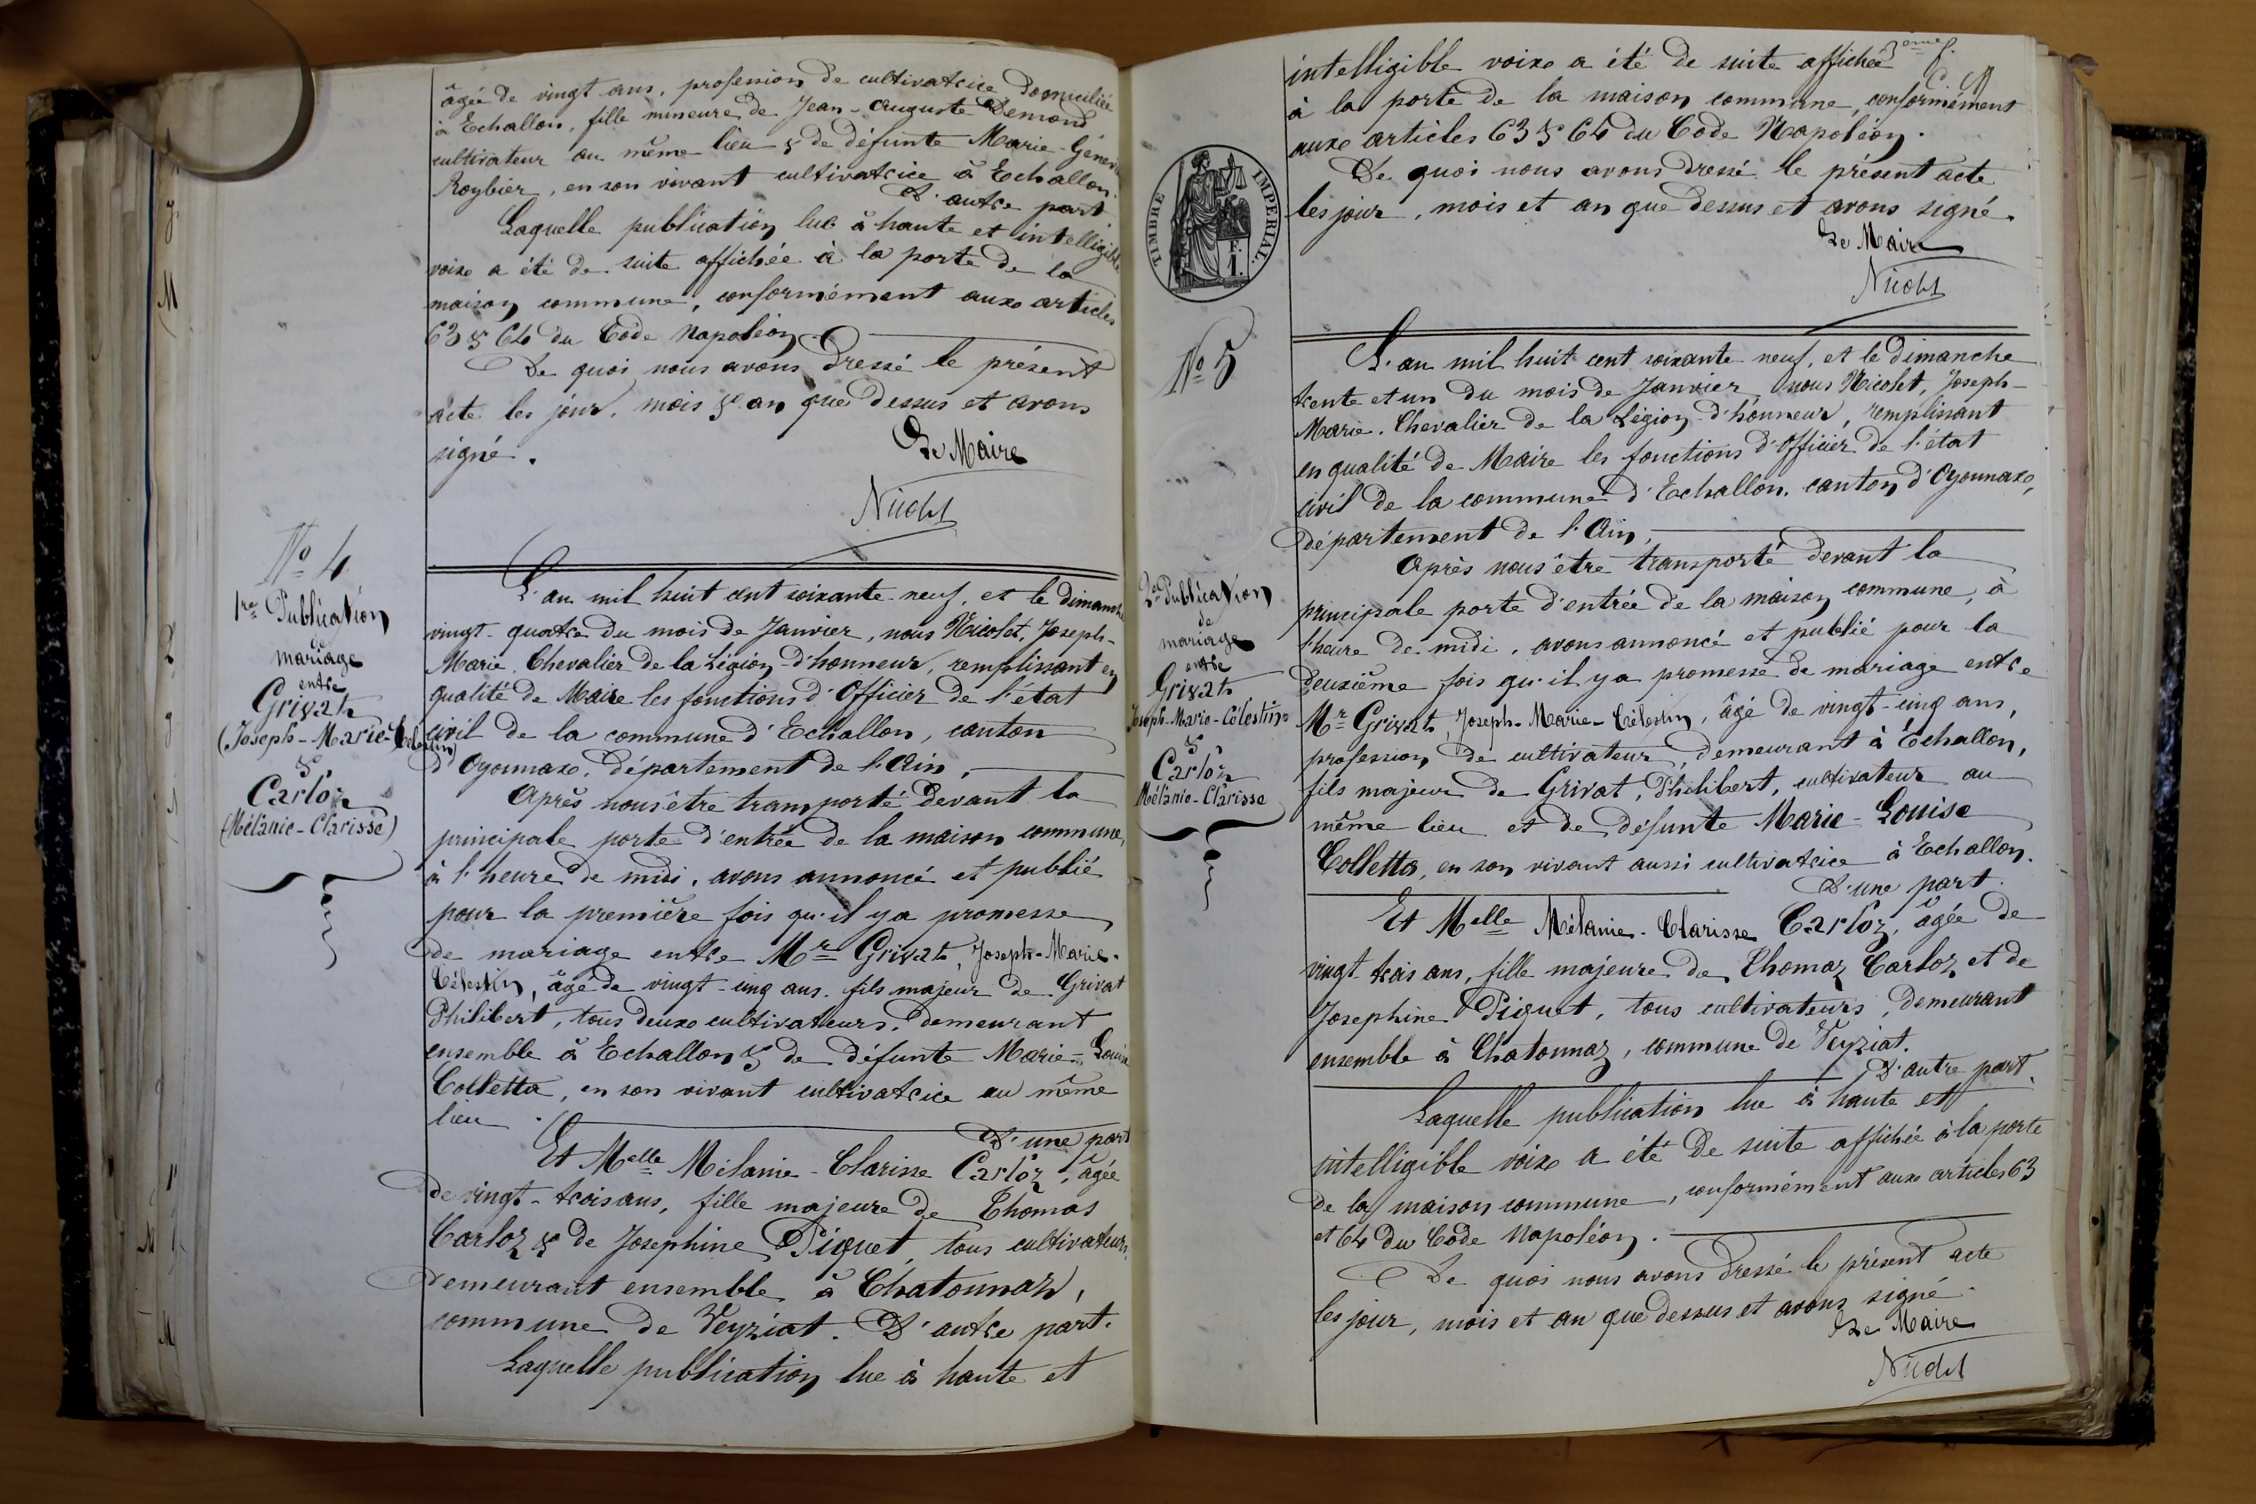 âgée de vingt ans, profession de cultivatrice domiciliée
à Echallon, fille mineure de Jean-Auguste Demond
cultivateur au même lieu & de défunte Marie-Genev
Roybier, en son vivant cultivatrice à Echallon
D'autre part
Laquelle publication lue à haute et intelligible
voix a été de suite affichée à la porte de la
maison commune, conformément aux articles
63 & 64 du Code Napoléon.
De quoi nous avons dressé le présent
acte les jour, mois & an que dessus et avons
signé.
Le Maire
Nicolet
N° 4
1re Publication
de
mariage
entre
Grivat
(Joseph-Marie-Célestin)
&
Carloz
(Mélanie-Clarisse)
L'an mil huit cent soixante-neuf, et le dimanche
vingt-quatre du mois de Janvier, nous Nicolet, Joseph-
Marie, Chevalier de la Légion d'honneur, remplissant en
qualité de Maire les fonctions d'Officier de l'état
civil de la commune d'Echallon, canton
d'Oyonnax, département de l'Ain,
Après nous être transporté devant la
principale porte d'entrée de la maison commune,
à l'heure de midi, avons annoncé et publié
pour la première fois qu'il y a promesse
de mariage entre Mr Grivat, Joseph-Marie-
Célestin, âgé de vingt-cinq ans, fils majeur de Grivat
Philibert, tous deux cultivateurs, demeurant
ensemble à Echallon & de défunte Marie-Louise
Colletta, en son vivant cultivatrice au même
lieu.
D'une part
Et Melle Mélanie-Clarisse Carloz, âgée
de vingt-trois ans, fille majeure de Thomas
Carloz & de Josephine Piquet, tous cultivateurs,
demeurant ensemble à Chatonnaz,
commune de Veyziat. D'autre part.
Laquelle publication lue à haute et
3ème f.
intelligible voix a été de suite affichée
à la porte de la maison commune, conformément
aux articles 63 & 64 du Code Napoléon.
De quoi nous avons dressé le présent acte
les jour, mois et an que dessus et avons signé.
Le Maire
Nicolet
TIMBRE IMPERIAL
1 F.
N° 5
2e Publication
de
mariage
entre
Grivat
Joseph-Marie-Célestin
&
Carloz
Mélanie-Clarisse
L'an mil huit cent soixante-neuf, et le dimanche
trente et un du mois de Janvier, nous Nicolet, Joseph-
Marie, Chevalier de la Légion d'honneur, remplissant
en qualité de Maire les fonctions d'Officier de l'état
civil de la commune d'Echallon, canton d'Oyonnax,
département de l'Ain,
Après nous être transporté devant la
principale porte d'entrée de la maison commune, à
l'heure de midi, avons annoncé et publié pour la
deuxième fois qu'il y a promesse de mariage entre
Mr Grivat, Joseph-Marie-Célestin, âgé de vingt-cinq ans,
profession de cultivateur, demeurant à Echallon,
fils majeur de Grivat, Philibert, cultivateur au
même lieu et de défunte Marie-Louise
Colletta, en son vivant aussi cultivatrice à Echallon.
D'une part.
Et Melle Mélanie-Clarisse Carloz, âgée de
vingt-trois ans, fille majeure de Thomaz Carloz et de
Josephine Piquet, tous cultivateurs, demeurant
ensemble à Chatonnaz, commune de Veyziat.
D'autre part.
Laquelle publication lue à haute et
intelligible voix a été de suite affichée à la porte
de la maison commune, conformément aux articles 63
et 64 du Code Napoléon.
De quoi nous avons dressé le présent acte
les jour, mois et an que dessus et avons signé.
Le Maire
Nicolet